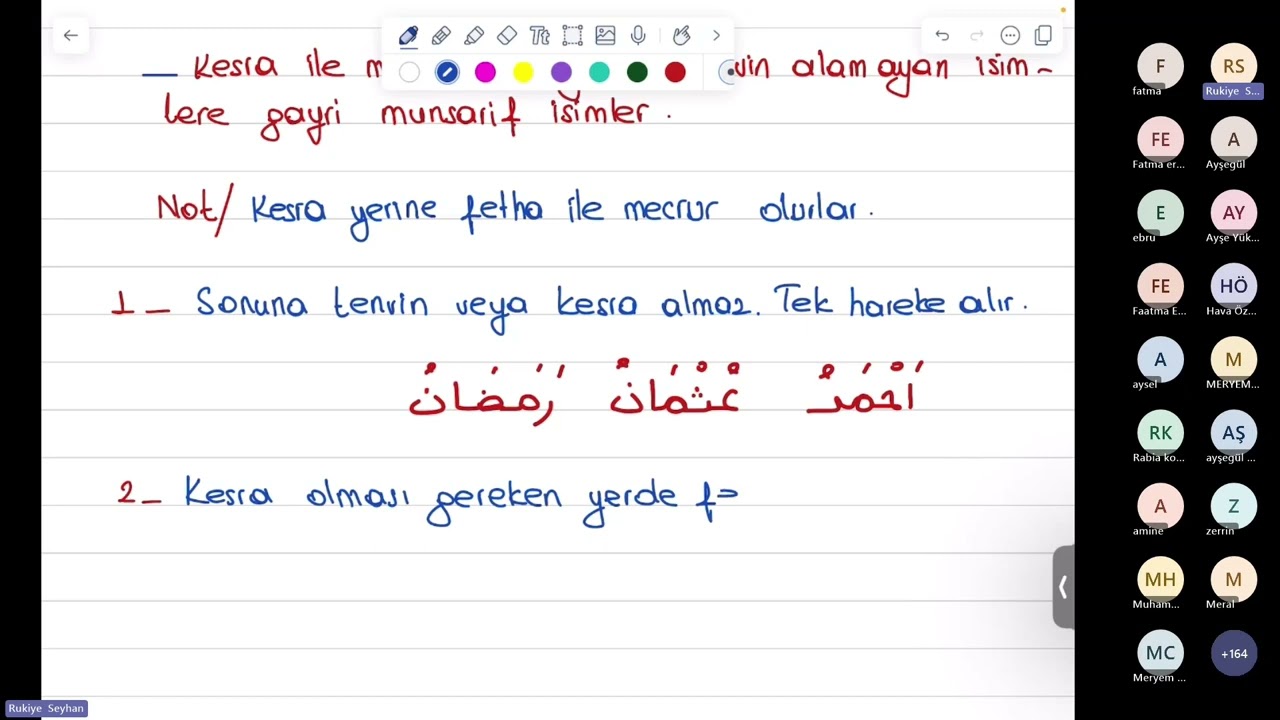 — Kesra ile m vin alamayan isim-
lere gayri munsarif isimler.
Not/ Kesra yerine fetha ile mecrur olurlar.
1 — Sonuna tenvin veya kesra almaz. Tek hareke alır.
اَحْمَدُ عُثْمَانُ رَمَضَانُ
2 — Kesra olması gereken yerde f
F
fatma
RS
Rukiye S...
FE
Fatma er...
A
Ayşegül
E
ebru
AY
Ayşe Yük...
FE
Faatma E...
HÖ
Hava Öz...
A
aysel
M
MERYEM...
RK
Rabia ko...
AŞ
ayşegül ...
A
amine
Z
zerrin
MH
Muham...
M
Meral
MC
Meryem ...
+164
Rukiye Seyhan